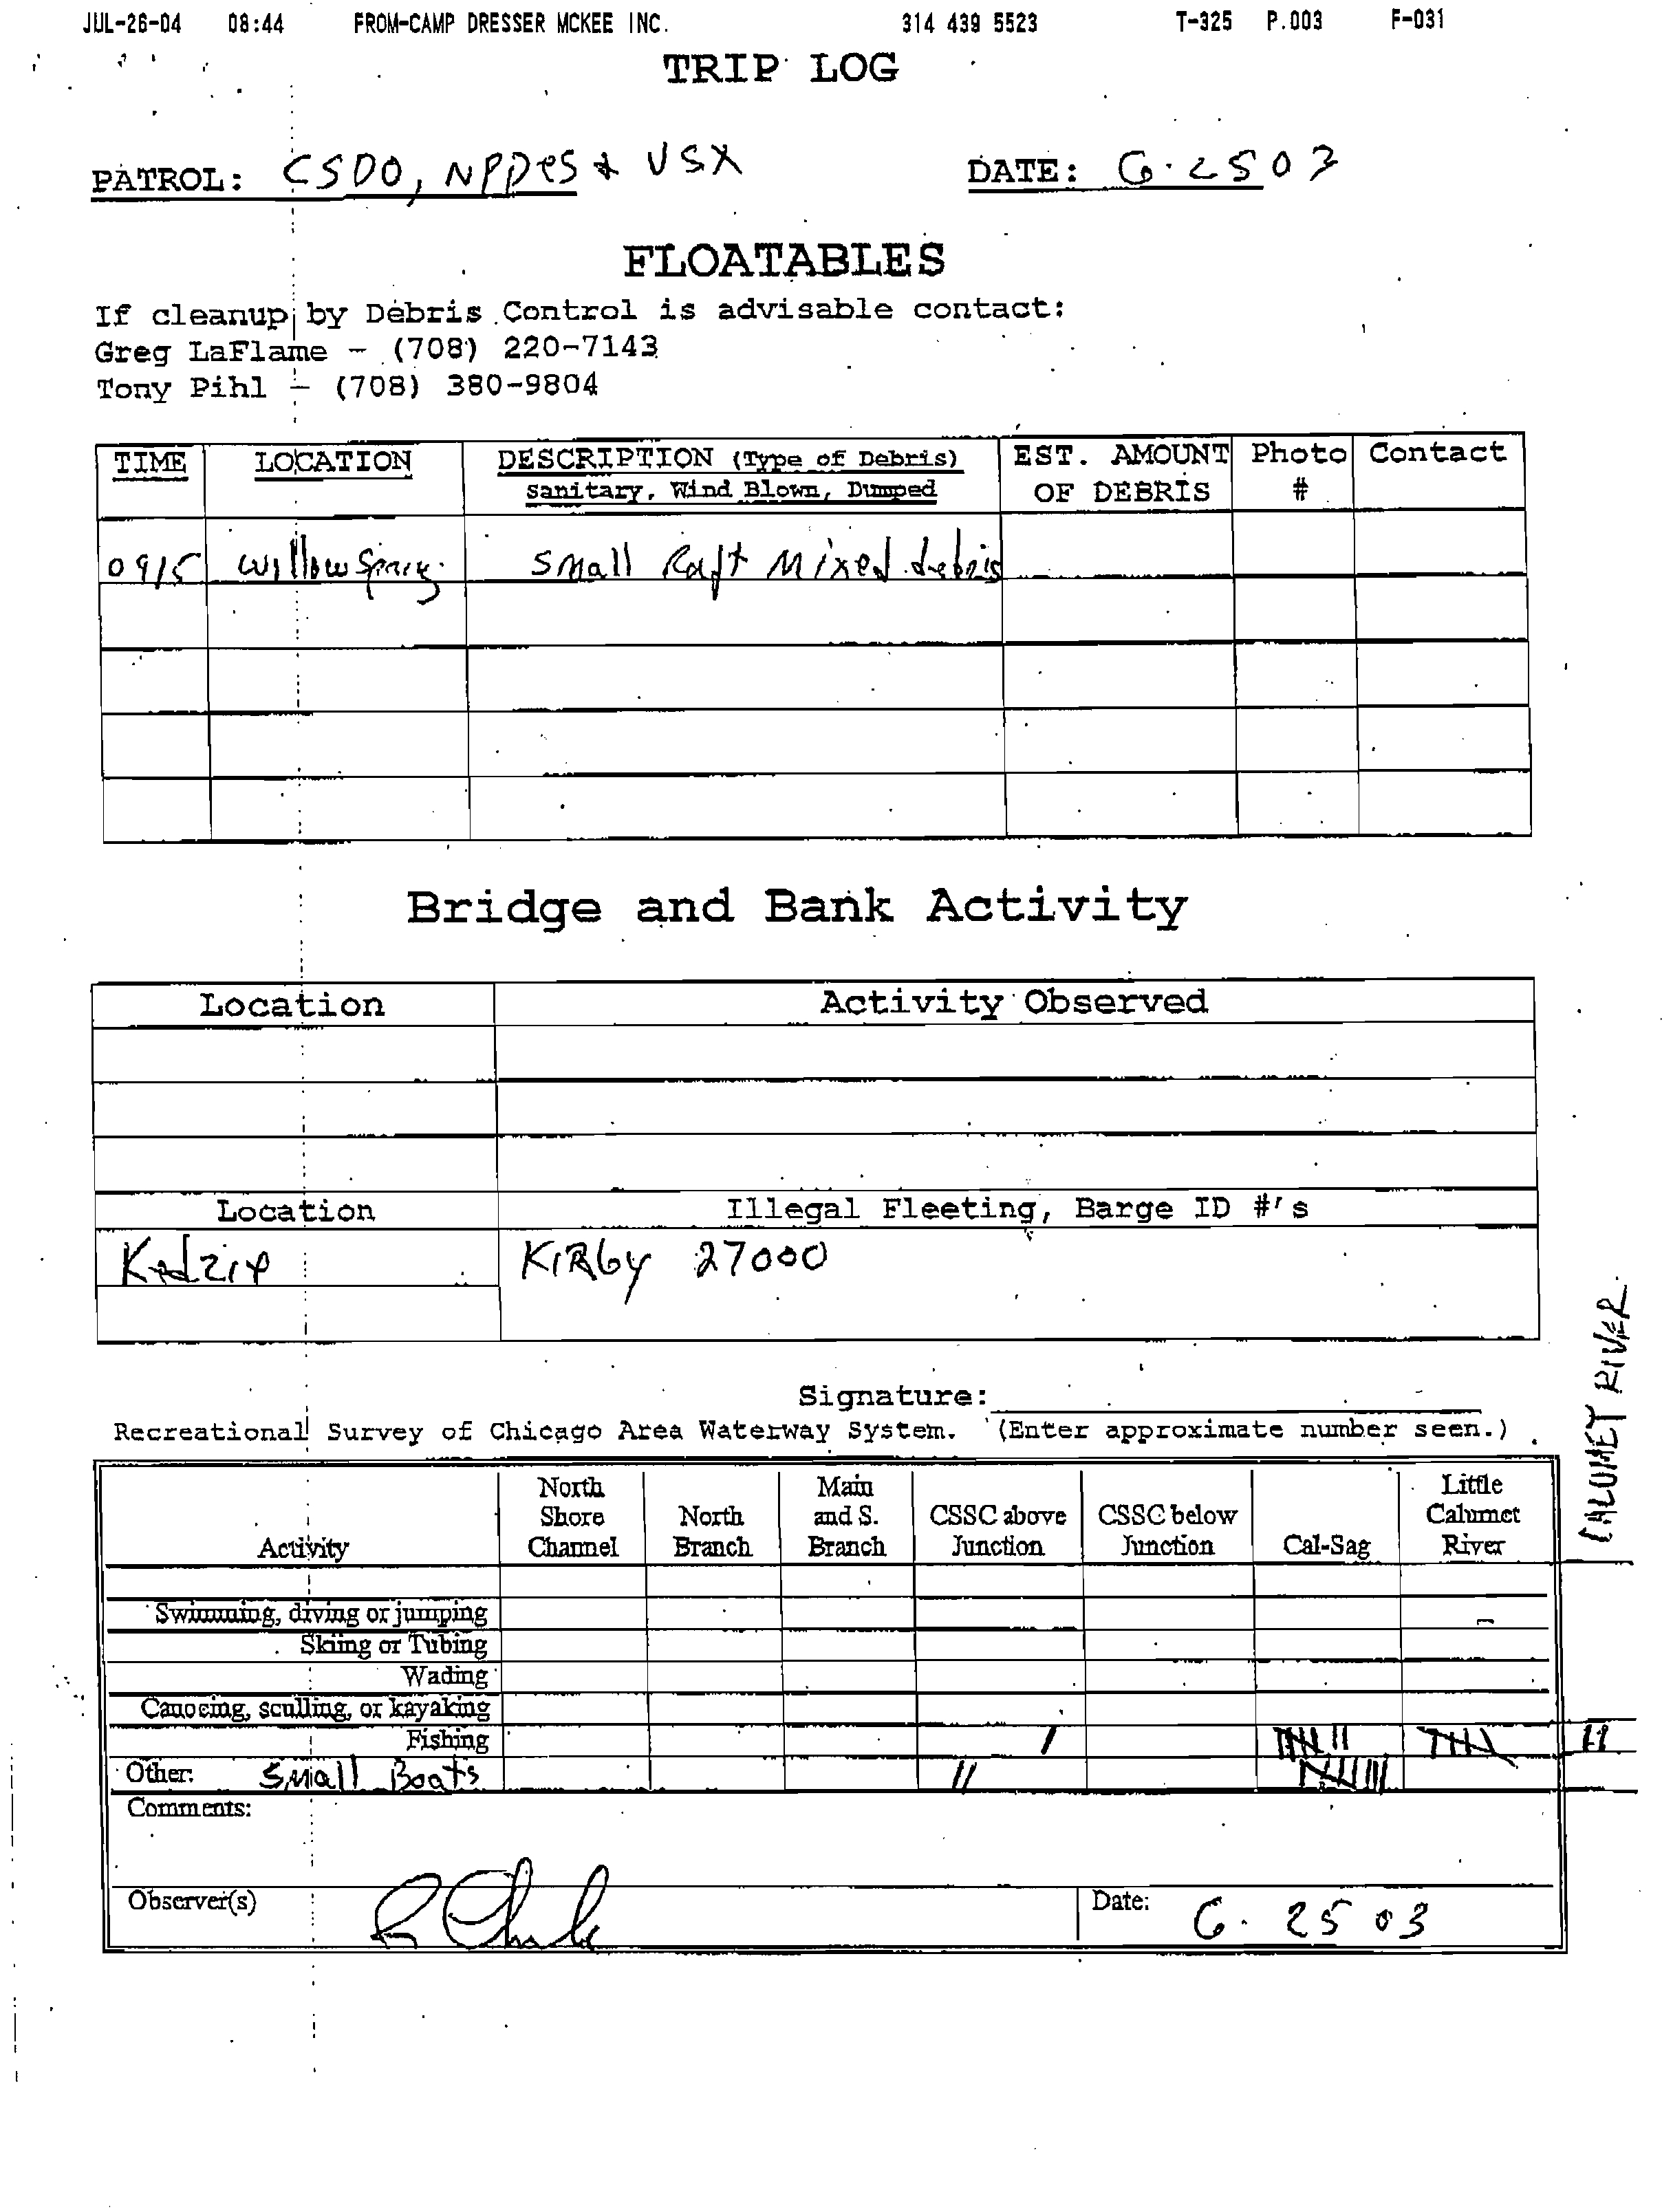 JUL-26-04 08:44 FROM-CAMP DRESSER MCKEE INC. 314 439 5523 T-325 P.003 F-031
TRIP LOG
PATROL: CSDO, NPDES & USX DATE: 6.2503
FLOATABLES
If cleanup by Debris Control is advisable contact:
Greg LaFlame - (708) 220-7143
Tony Pihl - (708) 380-9804
TIME LOCATION DESCRIPTION (Type of Debris) EST. AMOUNT Photo Contact
sanitary, Wind Blown, Dumped OF DEBRIS #
0915 Willow Spring. Small Raft Mixed debris
Bridge and Bank Activity
Location Activity Observed
Location Illegal Fleeting, Barge ID #'s
Kedzie KIRBY 27000
Signature:
Recreational Survey of Chicago Area Waterway System. (Enter approximate number seen.)
CALUMET RIVER
North Main Little
Shore North and S. CSSC above CSSC below Calumet
Activity Channel Branch Branch Junction Junction Cal-Sag River
Swimming, diving or jumping
Skiing or Tubing
Wading
Canoeing, sculling, or kayaking
Fishing
Other: Small Boats
Comments:
Observer(s) Date: 6. 25 03